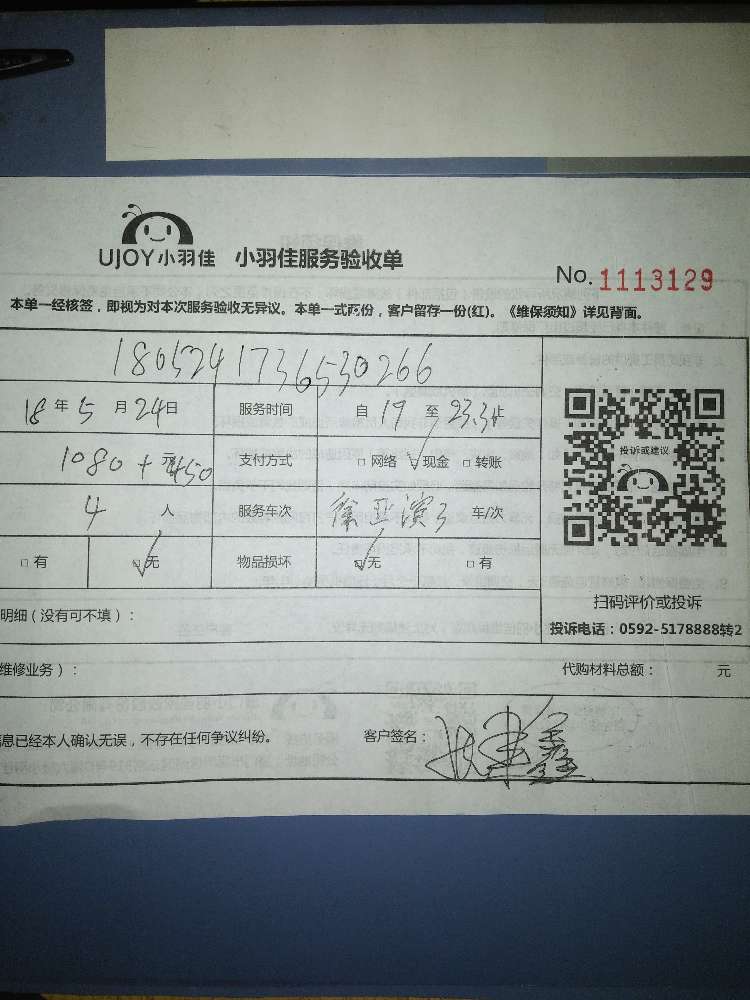 UJOY小羽佳 小羽佳服务验收单
No. 1113129
本单一经核签，即视为对本次服务验收无异议。本单一式两份，客户留存一份(红)。《维保须知》详见背面。
1805241736530266
18年5月24日 服务时间 自19至23.3止
1080+450元 支付方式 □网络 ☑现金 □转账
4人 服务车次 车/次
□有 ☑无 物品损坏 ☑无 □有
投诉或建议
扫码评价或投诉
投诉电话：0592-5178888转2
明细（没有可不填）：
维修业务）： 代购材料总额： 元
息已经本人确认无误，不存在任何争议纠纷。 客户签名：